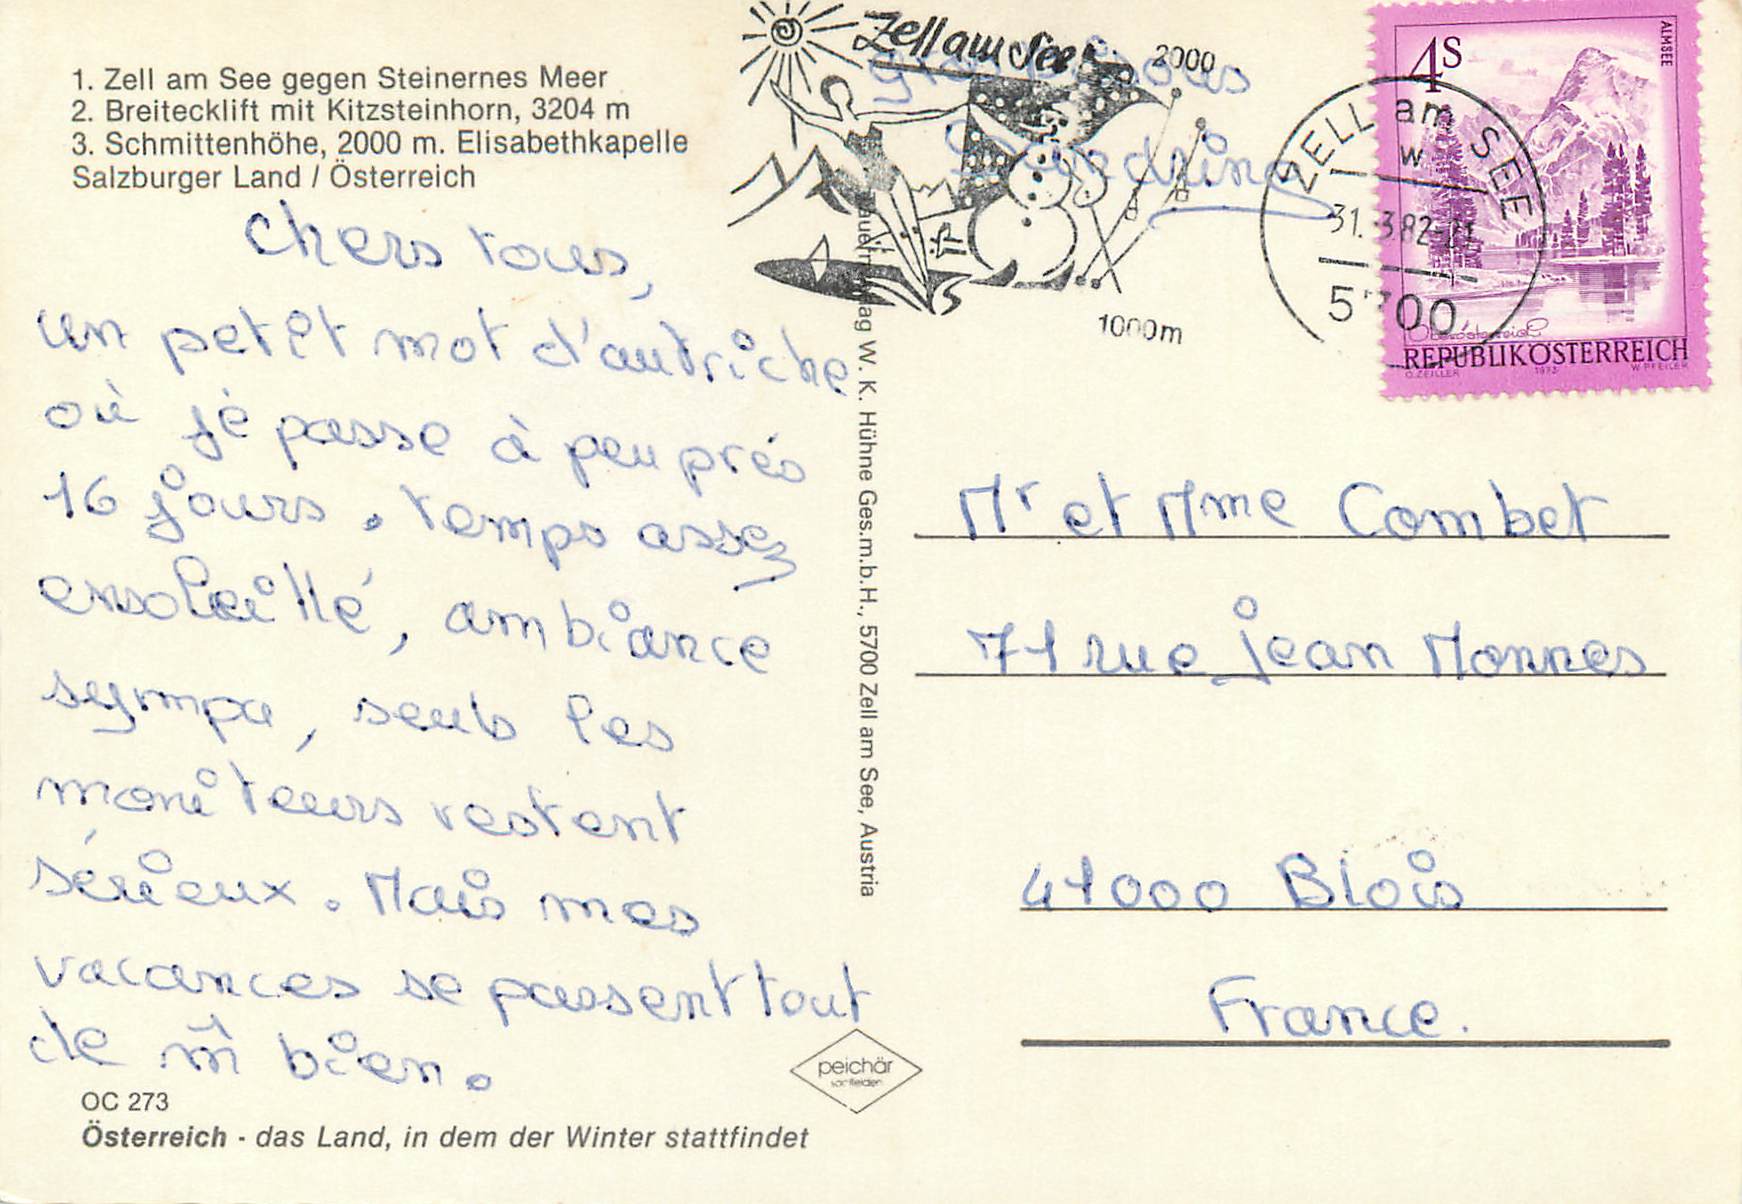 1. Zell am See gegen Steinernes Meer
2. Breitecklift mit Kitzsteinhorn, 3204 m
3. Schmittenhöhe, 2000 m. Elisabethkapelle
Salzburger Land / Österreich
Chers tous,
un petit mot d'autriche
où je passe à peu près
16 jours. temps assez
ensoleillé, ambiance
sympa, seuls les
moniteurs restent
sérieux. Mais mes
vacances se passent tout
de m̂ bien.
OC 273
Österreich - das Land, in dem der Winter stattfindet
W. K. Hühne Ges.m.b.H., 5700 Zell am See, Austria
peichär
Zell am See
2000
1000m
ZELL am SEE
31.-3.82-21
5700
4S
ALMSEE
Oberösterreich
REPUBLIK ÖSTERREICH
O. ZEILLER 1973 W. PFEILER
Mr et Mme Combet
71 rue jean Monnes
41000 Blois
France.